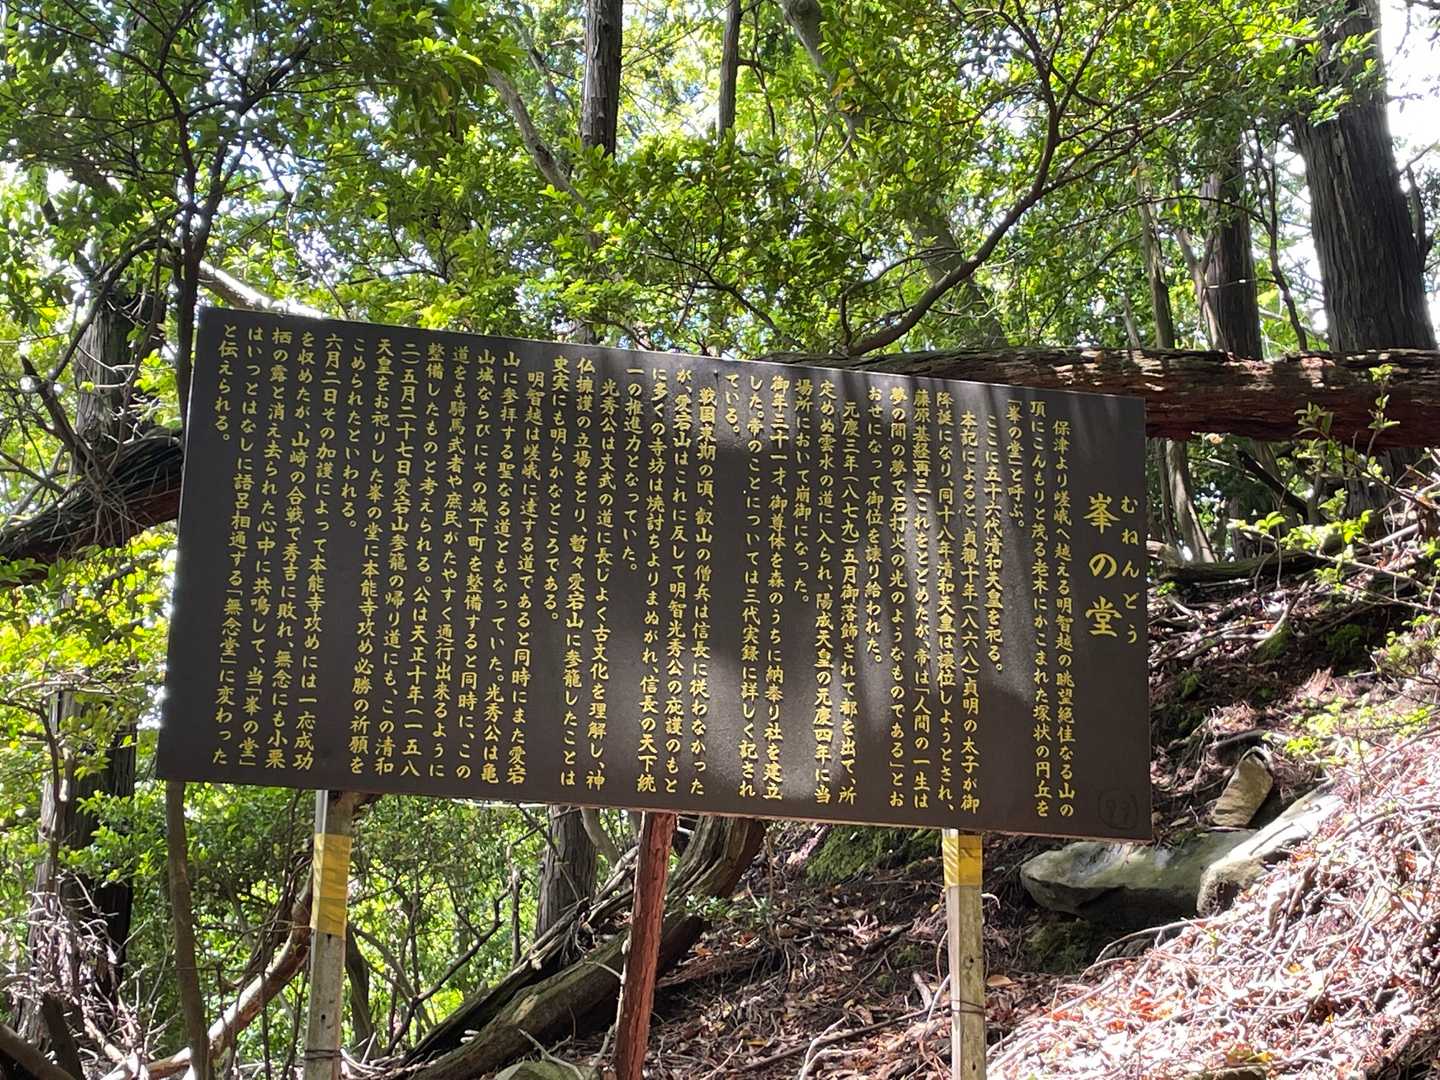 むねんどう
峯の堂
保津より嵯峨へ越える明智越の眺望絶佳なる山の
頂にこんもりと茂る老木にかこまれた塚状の円丘を
「峯の堂」と呼ぶ。
ここに五十六代清和天皇を祀る。
本記によると、貞観十年(八六八)貞明の太子が御
降誕になり、同十八年清和天皇は譲位しようとされ、
藤原基経再三これをとどめたが、帝は「人間の一生は
夢の間の夢で石打火の光のようなものである」とお
おせになって御位を譲り給われた。
元慶三年(八七九)五月御落飾されて都を出て、所
定めぬ雲水の道に入られ、陽成天皇の元慶四年に当
場所において崩御になった。
御年三十一才、御尊体を森のうちに納奉り社を建立
した。帝のことについては三代実録に詳しく記され
ている。
戦国末期の頃、叡山の僧兵は信長に従わなかった
が、愛宕山はこれに反して明智光秀公の庇護のもと
に多くの寺坊は焼討ちよりまぬがれ、信長の天下統
一の推進力となっていた。
光秀公は文武の道に長じよく古文化を理解し、神
仏擁護の立場をとり、暫々愛宕山に参籠したことは
史実にも明らかなところである。
明智越は嵯峨に達する道であると同時にまた愛宕
山に参拝する聖なる道ともなっていた。光秀公は亀
山城ならびにその城下町を整備すると同時に、この
道をも騎馬武者や庶民がたやすく通行出来るように
整備したものと考えられる。公は天正十年(一五八
二)五月二十七日愛宕山参籠の帰り道にも、この清和
天皇をお祀りした峯の堂に本能寺攻め必勝の祈願を
こめられたといわれる。
六月二日その加護によって本能寺攻めには一応成功
を収めたが、山崎の合戦で秀吉に敗れ、無念にも小栗
栖の露と消え去られた心中に共鳴して、当「峯の堂」
はいつとはなしに語呂相通する「無念堂」に変わった
と伝えられる。